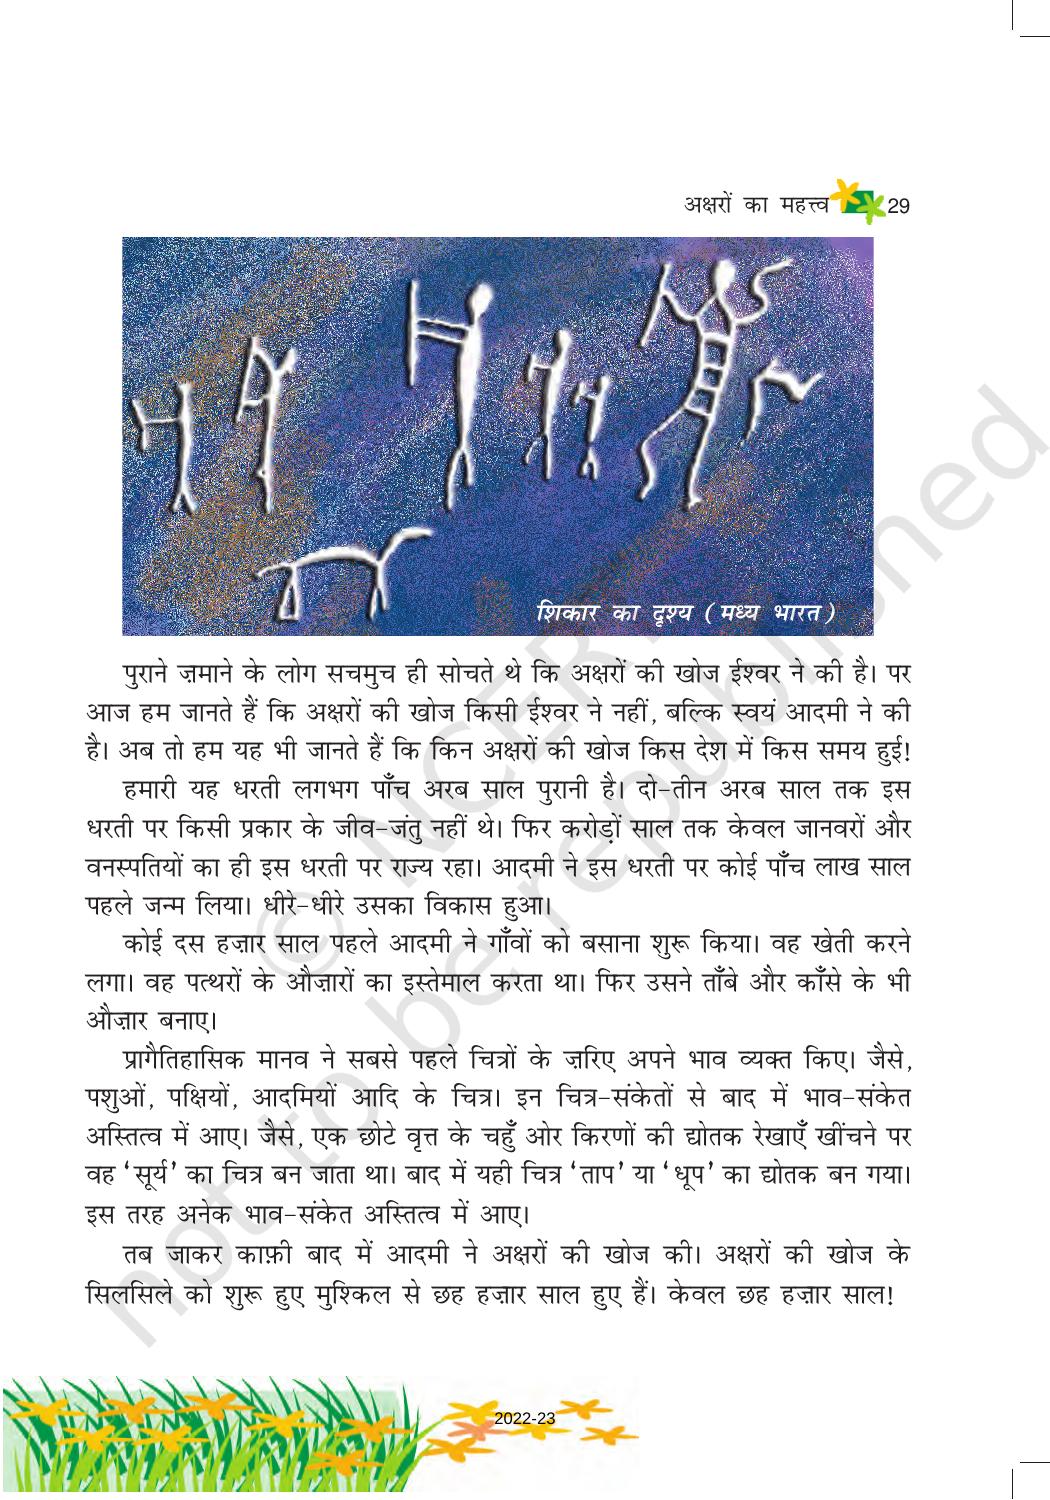 अक्षरों का महत्त्व 29
शिकार का दृश्य (मध्य भारत)
पुराने ज़माने के लोग सचमुच ही सोचते थे कि अक्षरों की खोज ईश्वर ने की है। पर
आज हम जानते हैं कि अक्षरों की खोज किसी ईश्वर ने नहीं, बल्कि स्वयं आदमी ने की
है। अब तो हम यह भी जानते हैं कि किन अक्षरों की खोज किस देश में किस समय हुई!
हमारी यह धरती लगभग पाँच अरब साल पुरानी है। दो-तीन अरब साल तक इस
धरती पर किसी प्रकार के जीव-जंतु नहीं थे। फिर करोड़ों साल तक केवल जानवरों और
वनस्पतियों का ही इस धरती पर राज्य रहा। आदमी ने इस धरती पर कोई पाँच लाख साल
पहले जन्म लिया। धीरे-धीरे उसका विकास हुआ।
कोई दस हज़ार साल पहले आदमी ने गाँवों को बसाना शुरू किया। वह खेती करने
लगा। वह पत्थरों के औज़ारों का इस्तेमाल करता था। फिर उसने ताँबे और काँसे के भी
औज़ार बनाए।
प्रागैतिहासिक मानव ने सबसे पहले चित्रों के ज़रिए अपने भाव व्यक्त किए। जैसे,
पशुओं, पक्षियों, आदमियों आदि के चित्र। इन चित्र-संकेतों से बाद में भाव-संकेत
अस्तित्व में आए। जैसे, एक छोटे वृत्त के चहुँ ओर किरणों की द्योतक रेखाएँ खींचने पर
वह ‘सूर्य’ का चित्र बन जाता था। बाद में यही चित्र ‘ताप’ या ‘धूप’ का द्योतक बन गया।
इस तरह अनेक भाव-संकेत अस्तित्व में आए।
तब जाकर काफ़ी बाद में आदमी ने अक्षरों की खोज की। अक्षरों की खोज के
सिलसिले को शुरू हुए मुश्किल से छह हज़ार साल हुए हैं। केवल छह हज़ार साल!
© NCERT
not to be republished
2022-23